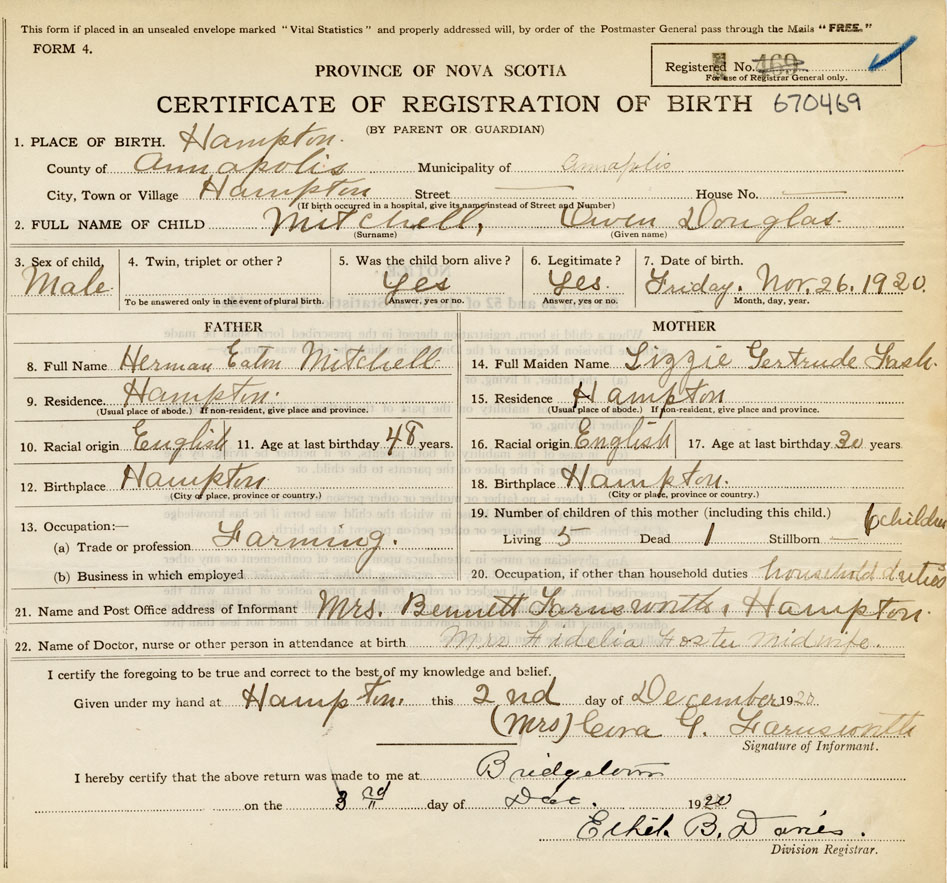 This form if placed in an unsealed envelope marked "Vital Statistics" and properly addressed will, by order of the Postmaster General pass through the Mails "FREE."
FORM 4.
Registered No. 469
For use of Registrar General only.
PROVINCE OF NOVA SCOTIA
CERTIFICATE OF REGISTRATION OF BIRTH 670469
(BY PARENT OR GUARDIAN)
1. PLACE OF BIRTH. Hampton.
County of Annapolis Municipality of Annapolis
City, Town or Village Hampton Street — House No. —
(If birth occurred in a hospital, give its name instead of Street and Number)
2. FULL NAME OF CHILD Mitchell, Owen Douglas.
(Surname) (Given name)
3. Sex of child. 4. Twin, triplet or other? 5. Was the child born alive? 6. Legitimate? 7. Date of birth.
Male. Yes Yes. Friday. Nov. 26. 1920.
To be answered only in the event of plural birth. (Answer, yes or no. Answer, yes or no. Month, day, year.
FATHER MOTHER
8. Full Name Herman Eaton Mitchell 14. Full Maiden Name Lizzie Gertrude Fash.
9. Residence. Hampton. 15. Residence Hampton
(Usual place of abode.) If non-resident, give place and province. (Usual place of abode.) If non-resident, give place and province.
10. Racial origin English 11. Age at last birthday 48 years. 16. Racial origin English 17. Age at last birthday 30 years
12. Birthplace Hampton 18. Birthplace Hampton.
(City or place, province or country.) (City or place, province or country.)
13. Occupation:— 19. Number of children of this mother (including this child.) 6 children
(a) Trade or profession Farming. Living 5 Dead 1 Stillborn —
(b) Business in which employed 20. Occupation, if other than household duties household duties
21. Name and Post Office address of Informant Mrs. Bennett Farnsworth, Hampton.
22. Name of Doctor, nurse or other person in attendance at birth Mrs Fidelia Foster Midwife.
I certify the foregoing to be true and correct to the best of my knowledge and belief.
Given under my hand at Hampton. this 2nd day of December 1920
(Mrs) Cora G. Farnsworth
Signature of Informant.
I hereby certify that the above return was made to me at Bridgetown
on the 3rd day of Dec. 1920
Ethel B. Davies.
Division Registrar.